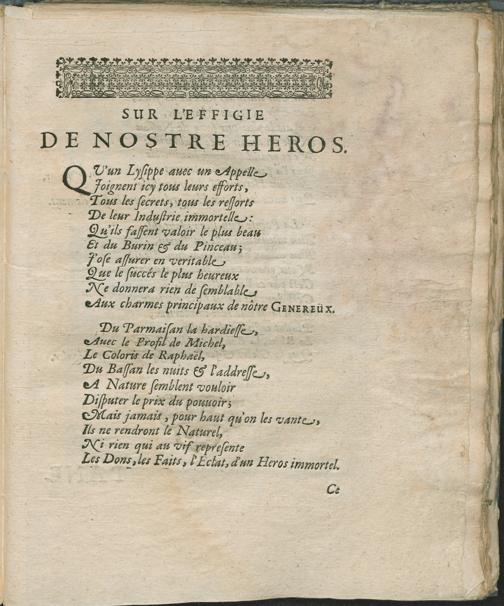 SUR L'EFFIGIE
DE NOSTRE HEROS.
QU'un Lysippe avec un Appelle
Joignent icy tous leurs efforts,
Tous les secrets, tous les ressorts
De leur Industrie immortelle:
Qu'ils fassent valoir le plus beau
Et du Burin & du Pinceau;
J'ose assurer en veritable
Que le succés le plus heureux
Ne donnera rien de semblable
Aux charmes principaux de nôtre GENEREUX.
Du Parmaisan la hardiesse,
Avec le Profil de Michel,
Le Coloris de Raphaël,
Du Bassan les nuits & l'addresse,
A Nature semblent vouloir
Disputer le prix du pouvoir;
Mais jamais, pour haut qu'on les vante,
Ils ne rendront le Naturel,
Ni rien qui au vif represente
Les Dons, les Faits, l'Eclat, d'un Heros immortel.
Ce